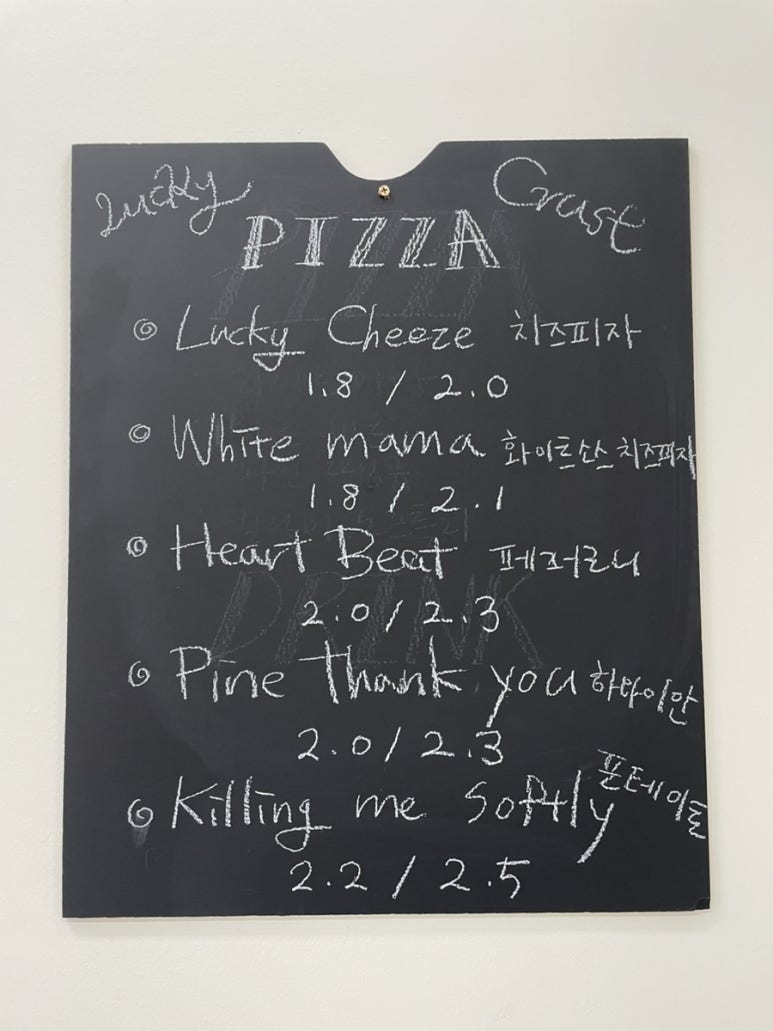 Lucky Crust
PIZZA
Lucky Cheeze 치즈피자
1.8 / 2.0
White mama 화이트소스치즈피자
1.8 / 2.1
Heart Beat 페퍼로니
2.0 / 2.3
Pine Thank you 하와이안
2.0 / 2.3
Killing me Softly 포테이토
2.2 / 2.5
DRINK